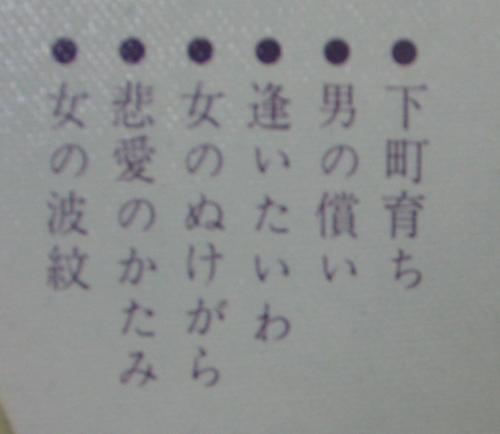 ●下町育ち
●男の償い
●逢いたいわ
●女のぬけがら
●悲愛のかたみ
●女の波紋